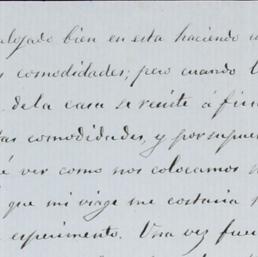 algado bien en esta haciendo
comodidades; pero cuando
de la casa se resiste á
comodidades, y por supue
ver como nos colocamos
que mi viage me costaria
esperimento. Una vez fue